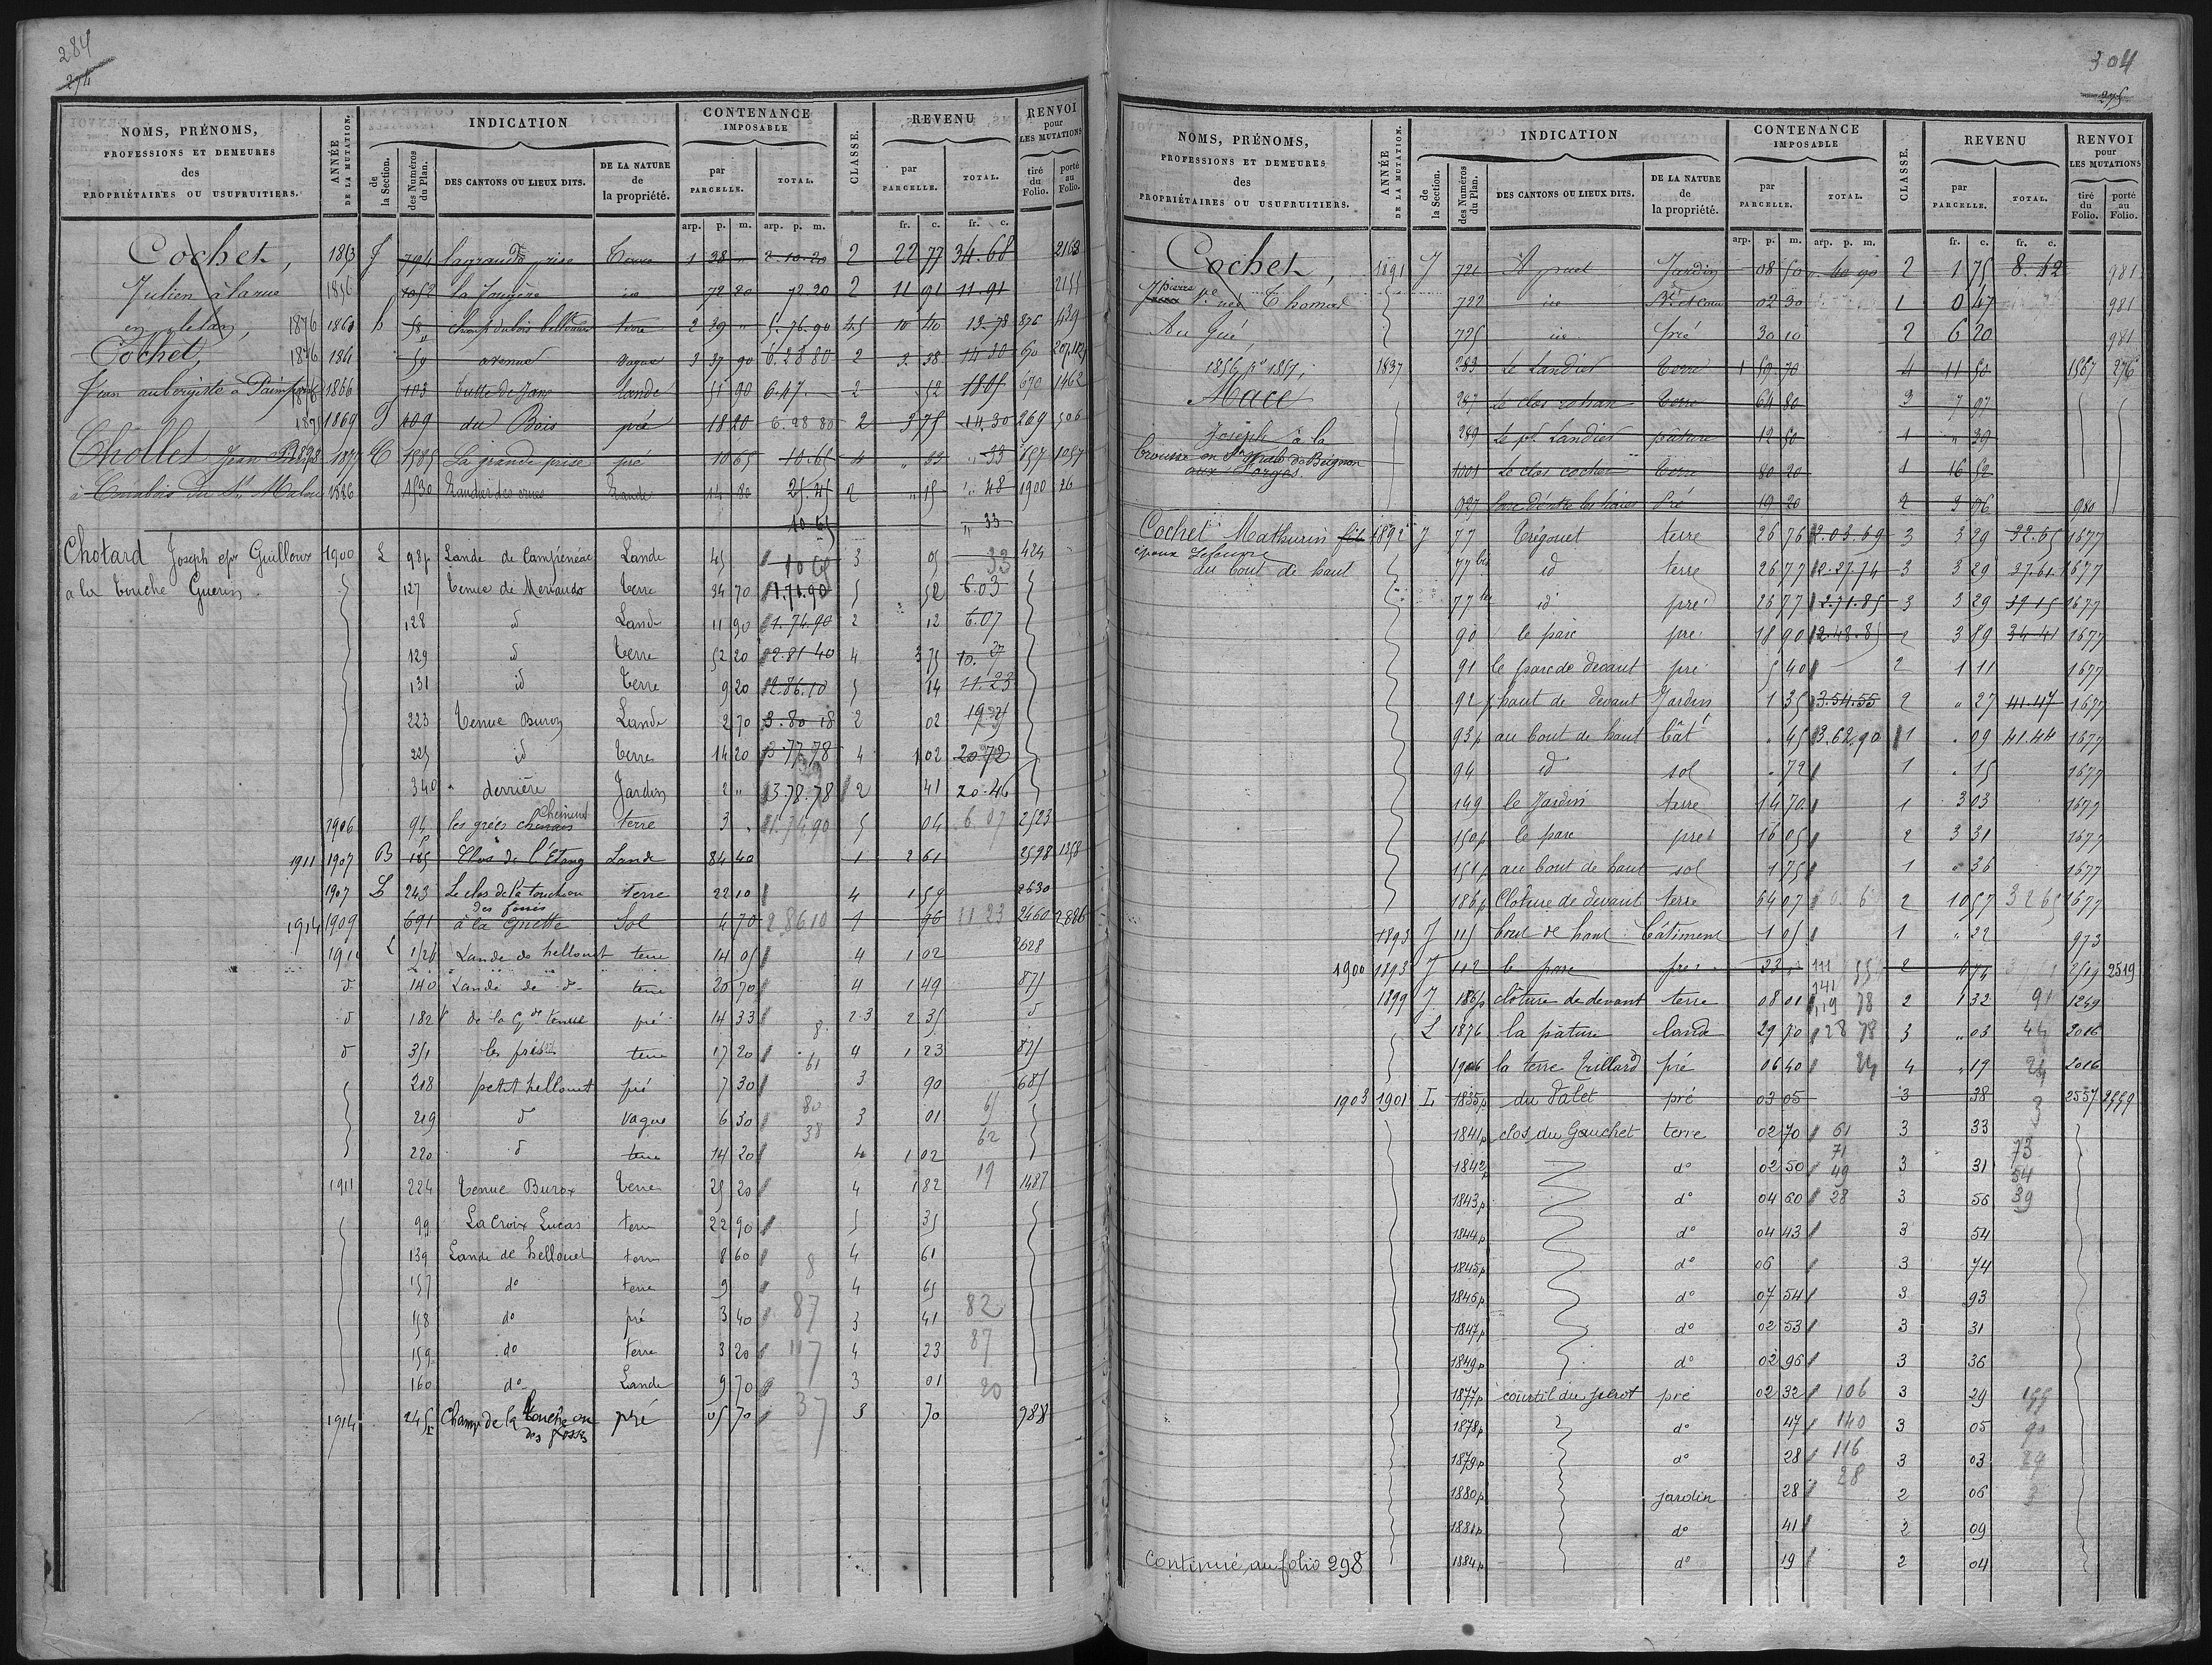 284
274
NOMS, PRÉNOMS,
PROFESSIONS ET DEMEURES
des
PROPRIÉTAIRES OU USUFRUITIERS.
ANNÉE DE LA MUTATION.
INDICATION
de la Section.
des Numéros du Plan.
DES CANTONS OU LIEUX DITS.
DE LA NATURE de la propriété.
CONTENANCE IMPOSABLE
par PARCELLE.
TOTAL.
CLASSE.
REVENU
par PARCELLE.
TOTAL.
RENVOI pour LES MUTATIONS
tiré du Folio.
porté au Folio.
arp. p. m. arp. p. m. fr. c. fr. c.
Cochet, 1853 J 794 la grande prise 1 38 " 2.10.20 2 22 77 34.68 2163
Julien à la rue 1856 1052 la Fougère id 72 20 72.20 2 11 91 11.91
en plélan, 1876 1860 58 terre 2 29 " 5.76.90 4.5 10 40 13.78 876 439
Cochet, 1876 59 avenue vague 3 37 90 6.28.80 2 3 38 14 30
Jean aubergiste à Paimpont 1866 103 butte de lande 51 90 2 52 670 1462
1875 1869 109 du Bois pré 18 20 6.28 80 2 3 75 14.30 264 506
Chollet Jean 1871 C 1585 La grande prise pré 10 65 10.65 4 " 33 " 33 657 1057
1886 1530 Lande 14 80 25.45 2 " 15 " 48 1900 26
10 65 " 33
Chotard Joseph epx Guilloux 1900 L 98p Lande de Campénéac Lande 45 10 65 3 05 33 424
a la touche Guerin 127 tenue de Meriando terre 34 70 1.71.90 5 52 6.03
128 d Lande 11 90 1.74.90 2 12 6.07
129 d terre 52 20 2.81 40 4 3 75
131 id terre 9 20 2.86.10 5 14 11.23
223 tenue Buron Lande 2 70 3.80 18 2 02
225 id terre 14 20 3.77.78 4 1 02 20 72
340 derrière Jardin 2 " 3.78.78 2 41 20.46
1906 94p les grées Cheminet terre 3 " 1.74.90 5 04 6 07 2523
1911 1907 B 185 Clos de l'Etang Lande 84 40 1 2 61 2598 1358
1907 L 243 Le clos de la touche ou des fossés terre 22 10 4 1 59 2630
1914 1909 691 à la Guette Sol 4 70 2.8610 1 96 11 23 2460 2886
L Lande de hellouet terre 14 05 4 1 02 2628
d 140 Lande de d terre 20 70 4 1 49 875
d 182 de la Gde tenue pré 14 33 2.3 2 35 d
d 351 terre 17 20 4 1 23 875
218 petit hellouet pré 7 30 3 90 685
219 d vague 6 30 3 01
220 d terre 14 20 4 1 02
1911 224 tenue Buron terre 25 20 4 1 82 19 1487
99 La Croix Lucas terre 22 90 5 35
139 Lande de hellouet terre 8 60 4 61
157 do terre 9 4 65
158 do pré 3 40 87 3 41 82
159 do terre 3 20 117 4 23 87
160 do Lande 9 70 3 01 20
1914 245 Champ de la touche ou des fossés pré 05 70 37 3 70 988
304
275
NOMS, PRÉNOMS,
PROFESSIONS ET DEMEURES
des
PROPRIÉTAIRES OU USUFRUITIERS.
ANNÉE DE LA MUTATION.
INDICATION
de la Section.
des Numéros du Plan.
DES CANTONS OU LIEUX DITS.
DE LA NATURE de la propriété.
CONTENANCE IMPOSABLE
par PARCELLE.
TOTAL.
CLASSE.
REVENU
par PARCELLE.
TOTAL.
RENVOI pour LES MUTATIONS
tiré du Folio.
porté au Folio.
arp. p. m. arp. p. m. fr. c. fr. c.
Cochet, 1891 J 721 Jardin 08 50 40 90 2 1 75 8.42 981
pierre Ve née Thomas 722 id 02 30 1 0 47 981
Au Gué, 725 id pré 30 10 2 6 20 981
1837 283 Le Landier terre 1 50 70 4 11 50 1567 276
Macé 287 terre 64 80 3 7 97
Joseph à la 289 Le pt Landier pâture 12 50 1 " 39
aux forges. 1001 Le clos cochet terre 80 20 1 16 52
927 Pré 19 20 2 3 06 980
Cochet Mathurin fils 1892 J 77 Trégouet terre 26 76 2.03.69 3 3 29 32.65 1677
époux Lefeuvre 77 bis id terre 26 77 2.27.74 3 3 29 37.61 1677
du bout de haut 77 ter id pré 26 77 2.71.85 3 3 29 39 15 1677
90 le parc pré 18 90 2.48.85 2 3 89 34.41 1677
91 le parc de devant pré 5 40 2 1 11 1677
92p haut de devant Jardin 1 35 3.54.55 2 " 27 41.47 1677
93p au bout de haut bât " 45 3.62.90 1 " 09 41.44 1677
94 id sol " 72 1 " 15 1677
149 le Jardin terre 14 70 1 3 03 1677
150p le parc pré 16 05 2 3 31 1677
151p au bout de haut sol 1 75 1 " 36 1677
186p Clôture de devant terre 64 07 2 10 57 32 65 1677
1893 J 115 bout de haut bâtiment 1 05 1 " 22 973
1900 1893 J 112 le parc pré 23 " 2 4 74 2519 2519
1899 J 186p clôture de devant terre 08 01 2 1 32 91 1249
L 1876 la pâture lande 29 70 3 " 03 2016
1906 la terre Trillard pré 06 40 4 " 19 2016
1903 1901 L 1835p du Palet pré 03 05 3 38 2557 2559
1841p clos du Gauchet terre 02 70 61 3 33
1842p do 02 50 3 31 73
1843p do 04 60 28 3 56 39
1844p do 04 43 3 54
1845p do 06 3 74
1846p do 07 54 3 93
1847p do 02 53 3 31
1849p do 02 96 3 36
1877p courtil du perot pré 02 32 106 3 29
1878p do 47 140 3 05
1879p do 28 116 3 03
1880p jardin 28 28 2 06
1881p do 41 2 09
Continué au folio 298 1884p do 19 2 04